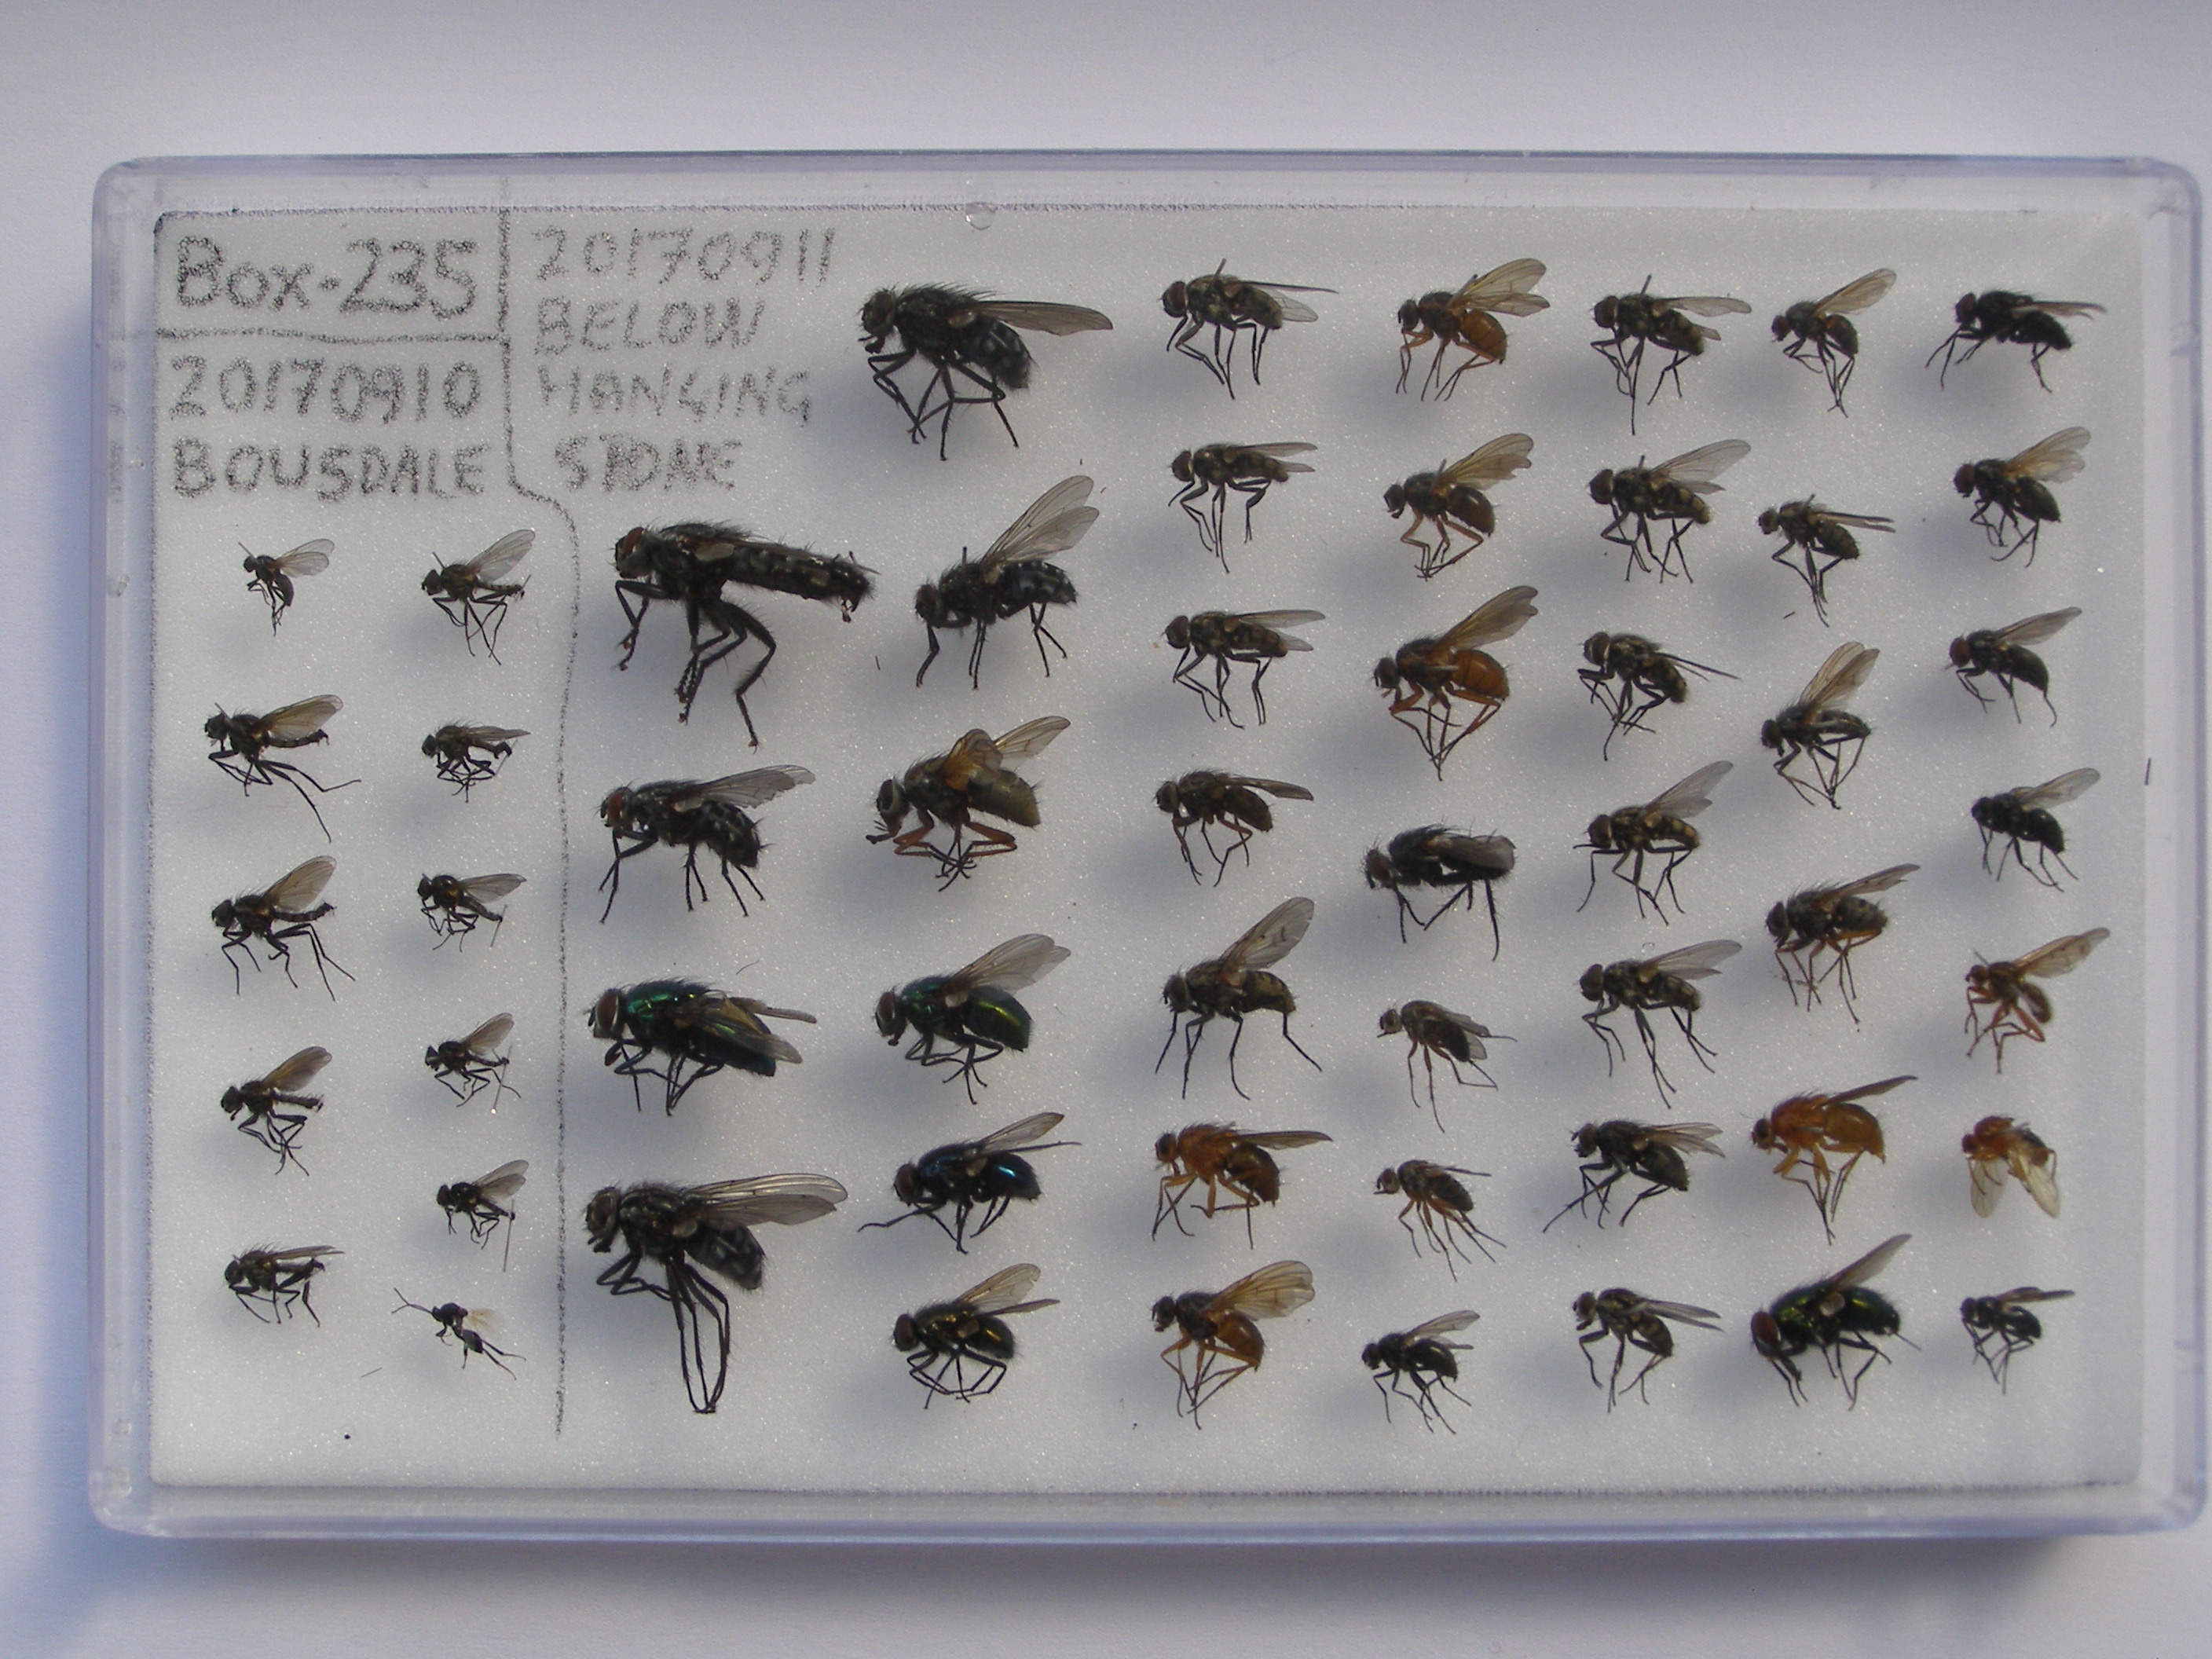 Box-235
20170910
BOUSDALE
20170911
BELOW
HANGING
STONE